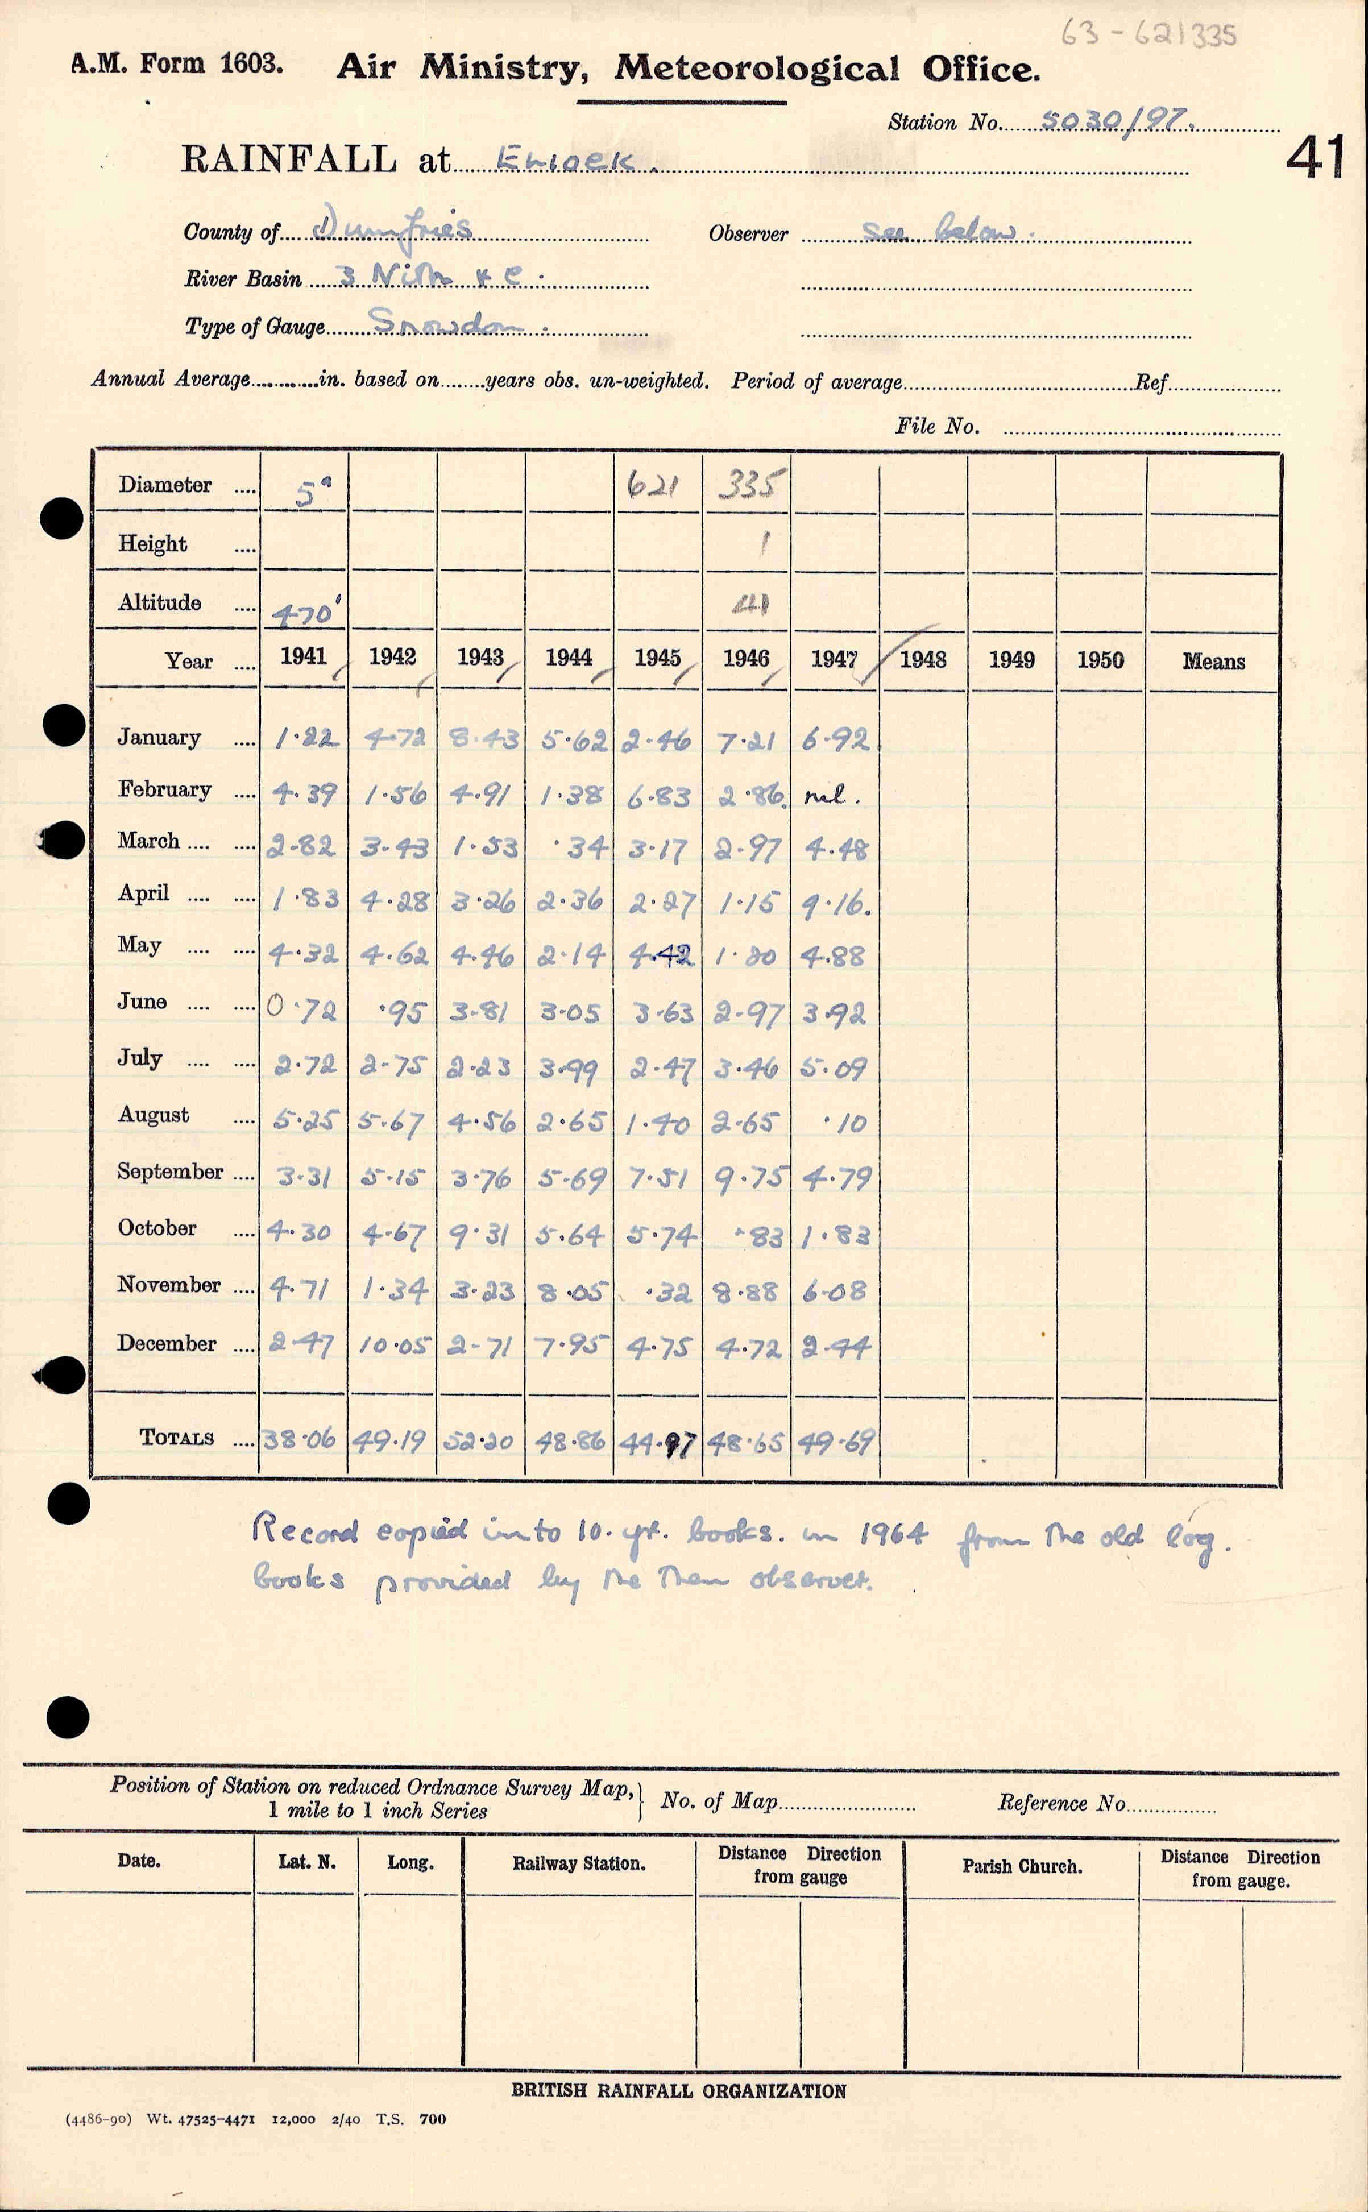 63-621335
A.M. Form 1603. Air Ministry, Meteorological Office.
Station No. 5030/97.
41
RAINFALL at Eliock.
County of Dumfries Observer see below.
River Basin 3 Nith &c.
Type of Gauge Snowdon.
Annual Average in. based on years obs. un-weighted. Period of average Ref
File No.
Diameter 5" 621 335
Height 1
Altitude 470' 41
Year 1941 1942 1943 1944 1945 1946 1947 1948 1949 1950 Means
January 1.22 4.72 8.43 5.62 2.46 7.21 6.92
February 4.39 1.56 4.91 1.38 6.83 2.86 nil.
March 2.82 3.43 1.53 .34 3.17 2.97 4.48
April 1.83 4.28 3.26 2.36 2.27 1.15 9.16.
May 4.32 4.62 4.46 2.14 4.42 1.20 4.88
June 0.72 .95 3.81 3.05 3.63 2.97 3.92
July 2.72 2.75 2.23 3.99 2.47 3.46 5.09
August 5.25 5.67 4.56 2.65 1.40 2.65 .10
September 3.31 5.15 3.76 5.69 7.51 9.75 4.79
October 4.30 4.67 9.31 5.64 5.74 .83 1.83
November 4.71 1.34 3.23 8.05 .32 8.88 6.08
December 2.47 10.05 2.71 7.95 4.75 4.72 2.44
TOTALS 38.06 49.19 52.20 48.86 44.97 48.65 49.69
Record copied into 10. yr. books. in 1964 from the old log.
books provided by the then observer.
Position of Station on reduced Ordnance Survey Map, 1 mile to 1 inch Series } No. of Map Reference No
Date. Lat. N. Long. Railway Station. Distance Direction from gauge Parish Church. Distance Direction from gauge.
BRITISH RAINFALL ORGANIZATION
(4486-90) Wt. 47525-4471 12,000 2/40 T.S. 700